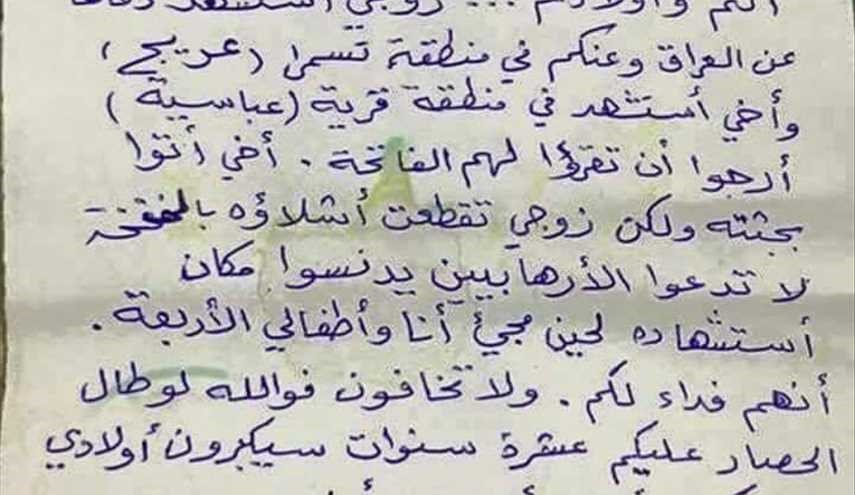 عن العراق وعنكم في منطقة تسمى (عريج)
وأخي أستشهد في منطقة قرية (عباسية)
أرجوا أن تقرؤا لهم الفاتحة. أخي أتوا
بجثته ولكن زوجي تقطعت أشلاؤه بالمفخخة
لا تدعوا الأرهابيين يدنسوا مكان
أستشهاده لحين مجيئ أنا وأطفالي الأربعة.
أنهم فداء لكم. ولا تخافون فوالله لو طال
الحصار عليكم عشرة سنوات سيكبرون أولادي